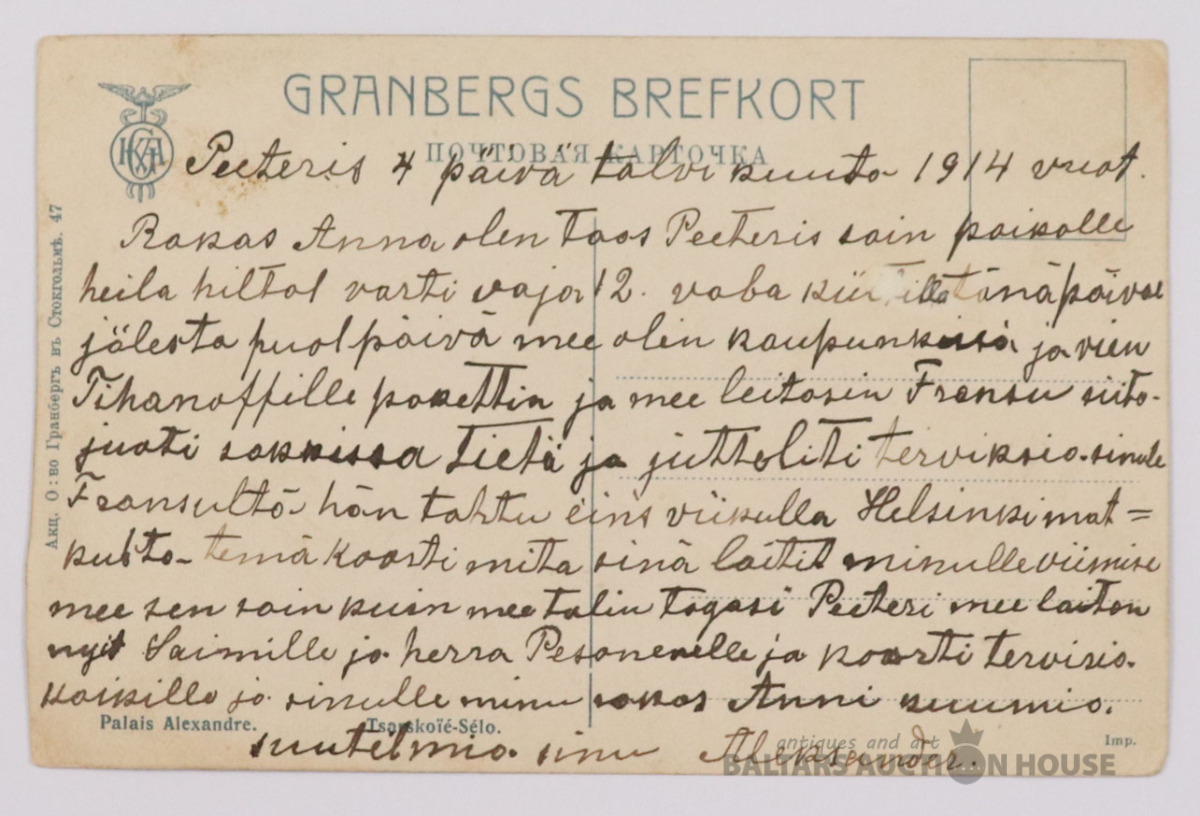 GRANBERGS BREFKORT
ПОЧТОВАЯ КАРТОЧКА
Peeteris 4 päivä talvi kuuta 1914 vuot.
Rakas Anna olen taas Peeteris sain paikalle
heila hiltal varti vaja 12. vaba tänäpäival
jälesta puolpäivä mee olin kaupunkissa ja vien
Tihanoffille pakettin ja mee leitasin Fransu siita-
juati sakkissa tietä ja juttoliti terviksia sinule
Fransultä hän tahtu eins viikulla Helsinki mat=
kusta- temä kaarti mita sinä laitit minulle viimise
mee sen sain kuin mee talin tagasi Peeteri mee laitan
nyit Saimille ja herra Pesonenelle ja kaarti tervisia
kaikille ja sinulle minu rakas Anni kuumia.
suutelmia sinu Aleksander.
Акц. О:во Гранбергъ въ Стокгольмѣ. 47
Palais Alexandre. Tsarskoïé-Sélo.
Imp.
antiques and art
BALTARS AUCTION HOUSE